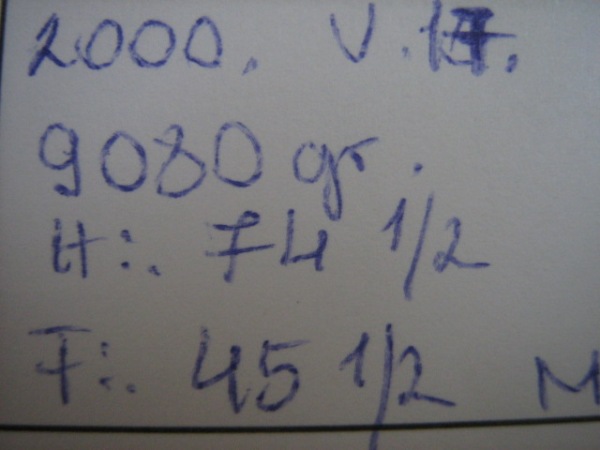 2000. V. 17.
9080 gr.
H:. 74 1/2
F:. 45 1/2 M